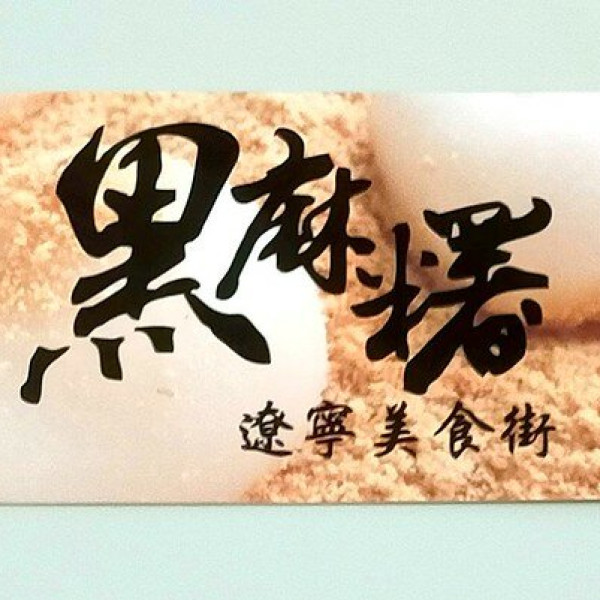 黑麻糬
遼寧美食街